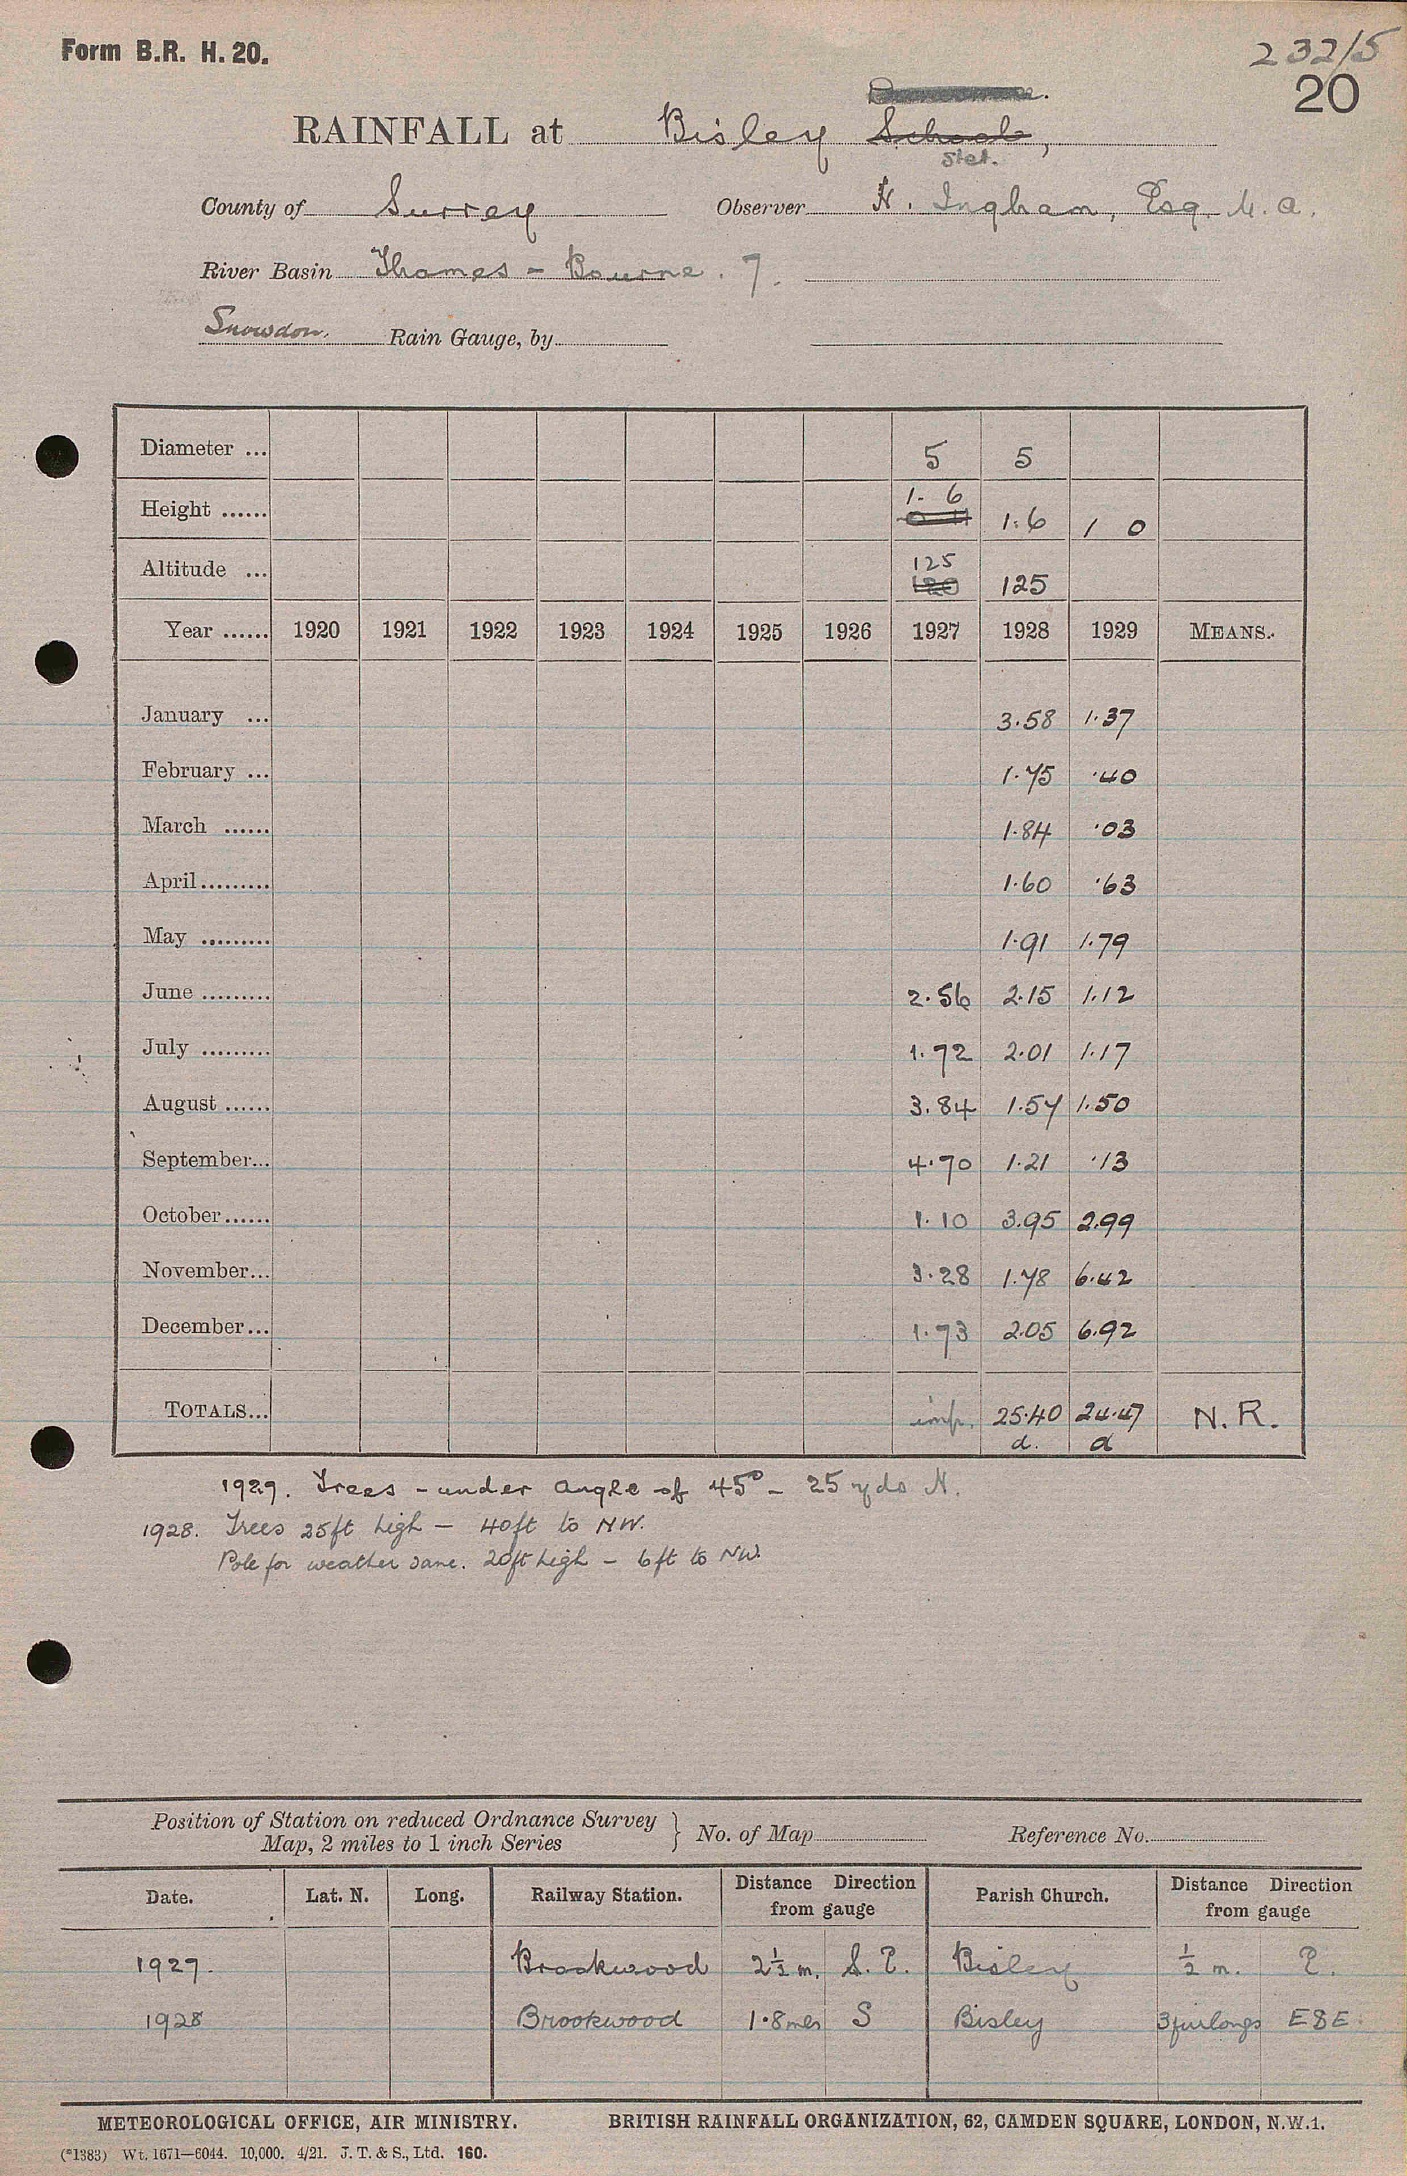 Form B.R. H. 20.
232/5
20
RAINFALL at Bisley School,
Stet.
County of Surrey Observer H. Ingham, Esq. M.A.
River Basin Thames - Bourne. 7.
Snowdon. Rain Gauge, by
Diameter ... 5 5
Height ...... 1. 6 1.6 1 0
Altitude ... 125 125
120
Year ...... 1920 1921 1922 1923 1924 1925 1926 1927 1928 1929 MEANS.
January ... 3.58 1.37
February ... 1.75 .40
March ...... 1.84 .03
April ......... 1.60 .63
May ......... 1.91 1.79
June ......... 2.56 2.15 1.12
July ......... 1.72 2.01 1.17
August ...... 3.84 1.57 1.50
September... 4.70 1.21 .13
October ...... 1.10 3.95 2.99
November... 3.28 1.78 6.42
December... 1.73 2.05 6.92
TOTALS... imp. 25.40 24.47 N.R.
d. d
1927. Trees - under angle of 45° - 25 yds N.
1928. Trees 25ft high - 40ft to NW.
Pole for weather vane. 20ft high - 6ft to NW.
Position of Station on reduced Ordnance Survey
Map, 2 miles to 1 inch Series } No. of Map Reference No.
Date. Lat. N. Long. Railway Station. Distance Direction from gauge Parish Church. Distance Direction from gauge
1927. Brookwood 2½ m. S.E. Bisley ½ m. E.
1928 Brookwood 1.8 mles S Bisley 3 furlongs ESE
METEOROLOGICAL OFFICE, AIR MINISTRY. BRITISH RAINFALL ORGANIZATION, 62, CAMDEN SQUARE, LONDON, N.W.1.
(*1383) Wt. 1671—6044. 10,000. 4/21. J. T. & S., Ltd. 160.